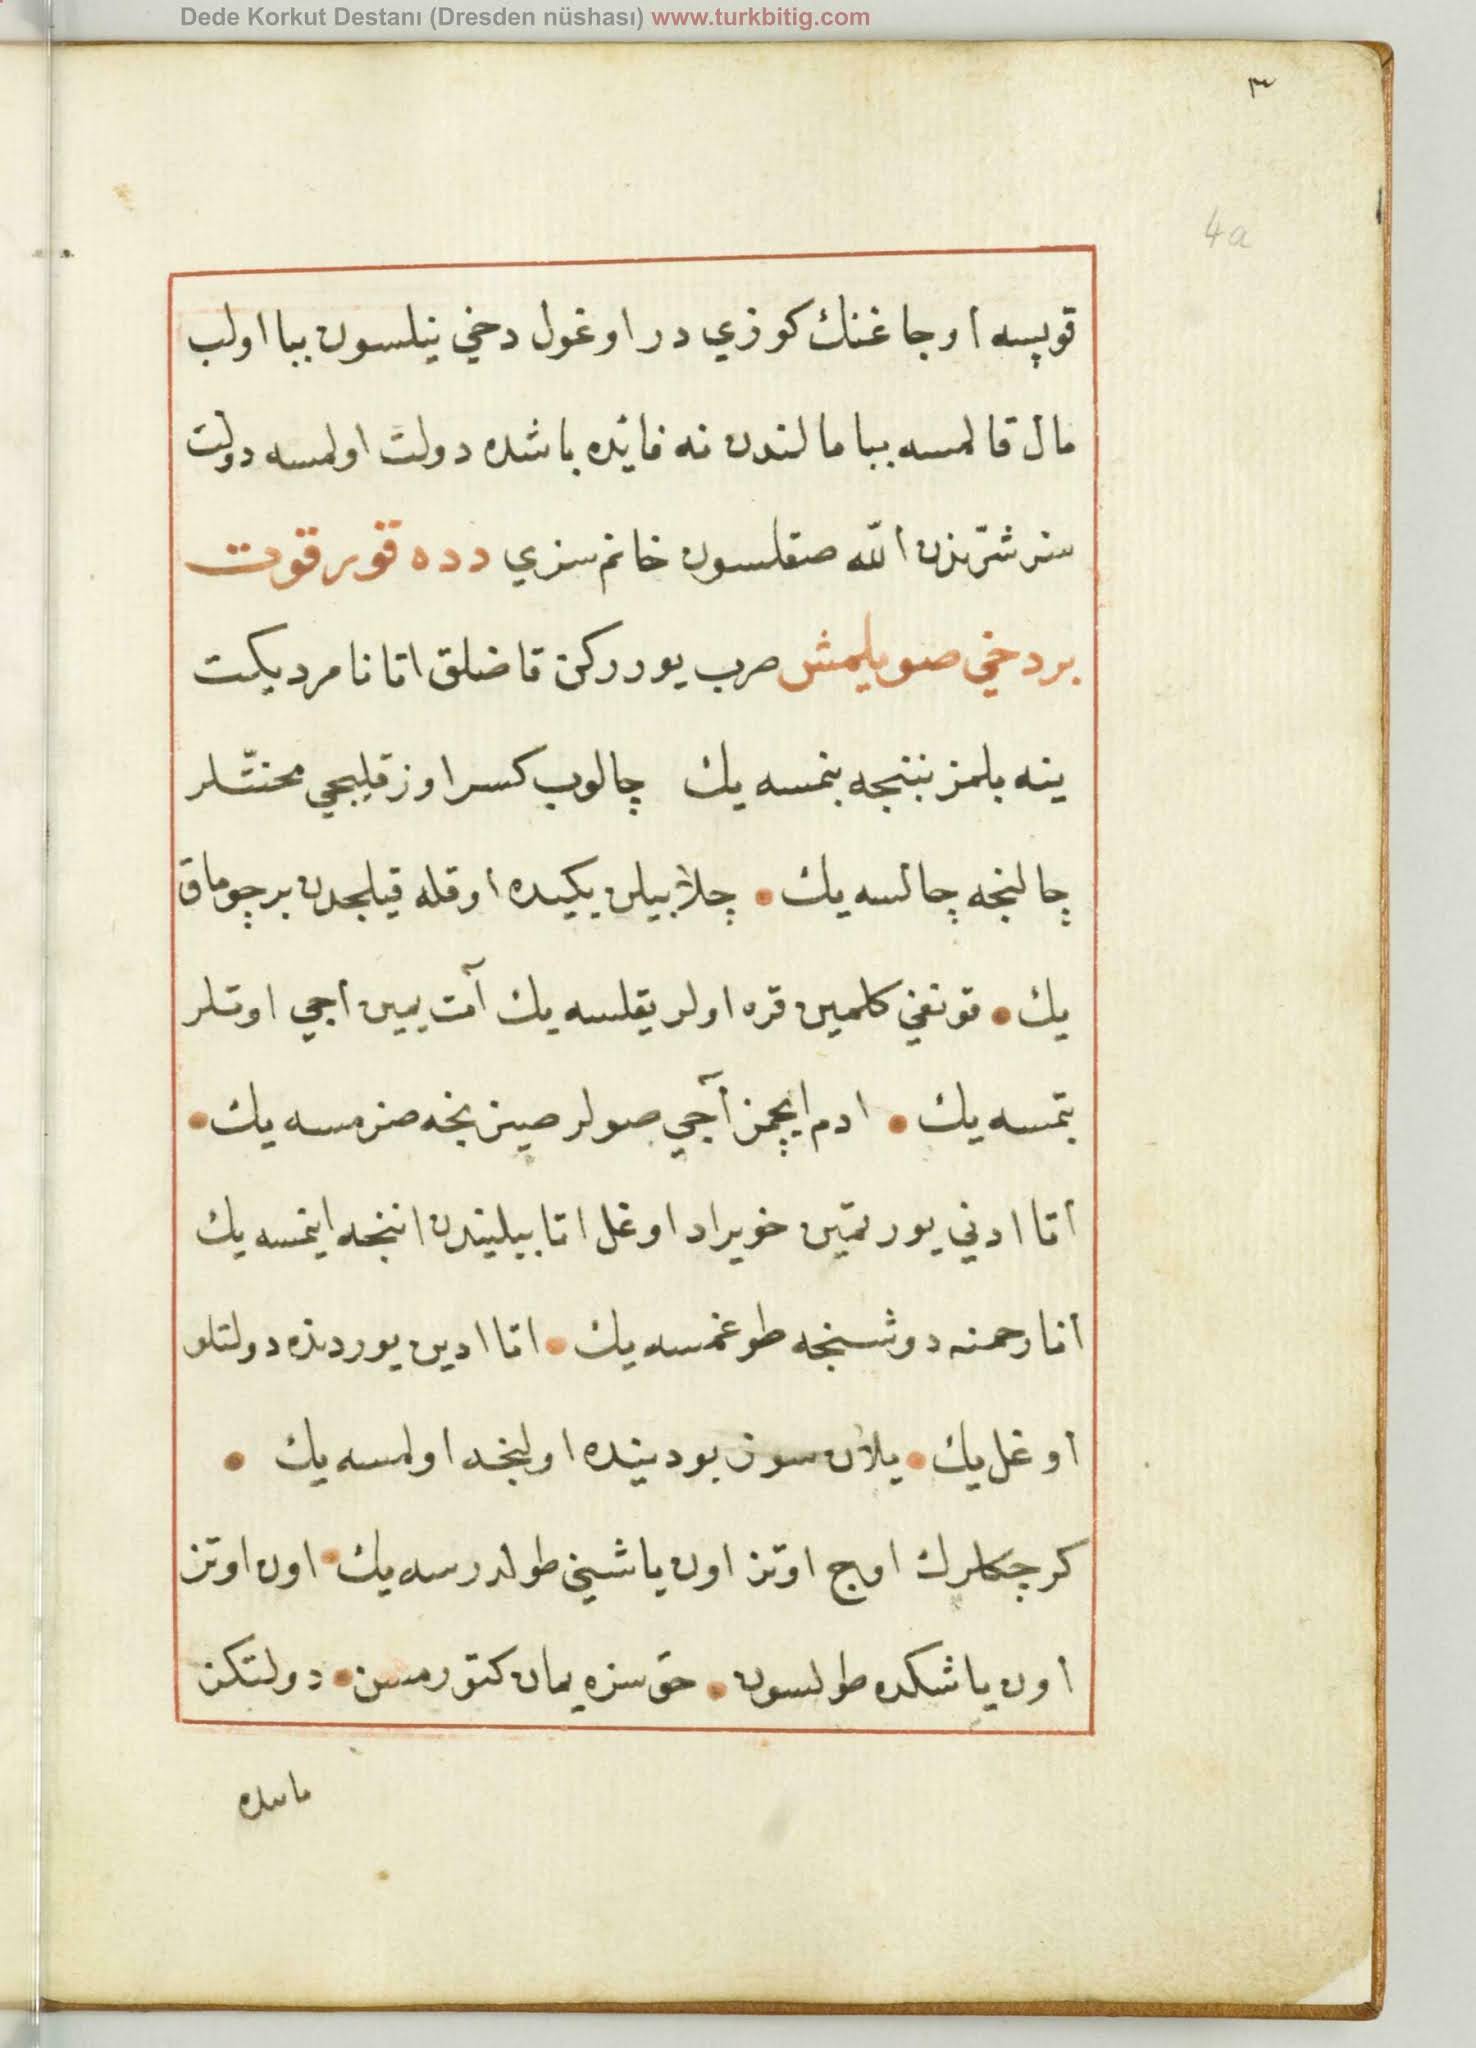 Dede Korkut Destanı (Dresden nüshası) www.turkbitig.com
٣
4a
قوپسه اوجاغنك كوزي در اوغول دخي نيلسون ببا اولب
مال قالمسه ببا مالندن نه فائده باشده دولت اولمسه دولت
سز شرّندن الله صقلسون خانم سزي دده قورقوت
بر دخي صويلمش صرب يوررکن قاضلق اتا نامرد يكت
ينه بلمز بننجه بنمسه يك چالوب كسر اوز قليجي محنثلر
چالنجه چالسه يك چلابيلن يكيده اوقله قيلجدن بر چوماق
يك قونغي كلمين قره اولر يقلسه يك آت يمين اجي اوتلر
بتمسه يك ادم ايچمز آجي صولر صيزنجه صزمسه يك
اتا ادني يورتمين خويراد اوغل اتا بيليندن اننجه اينمسه يك
انا رحمنه دوشنجه طوغمسه يك اتا ادين يوردنده دولتلو
اوغل يك يلان سوز بو دينده اولنجه اولمسه يك
كرجكلرك اوج اوتز اون ياشيني طولدرسه يك اون اوتز
اون ياشكده طولسون حق سزه يمان كتورمسن دولتكز